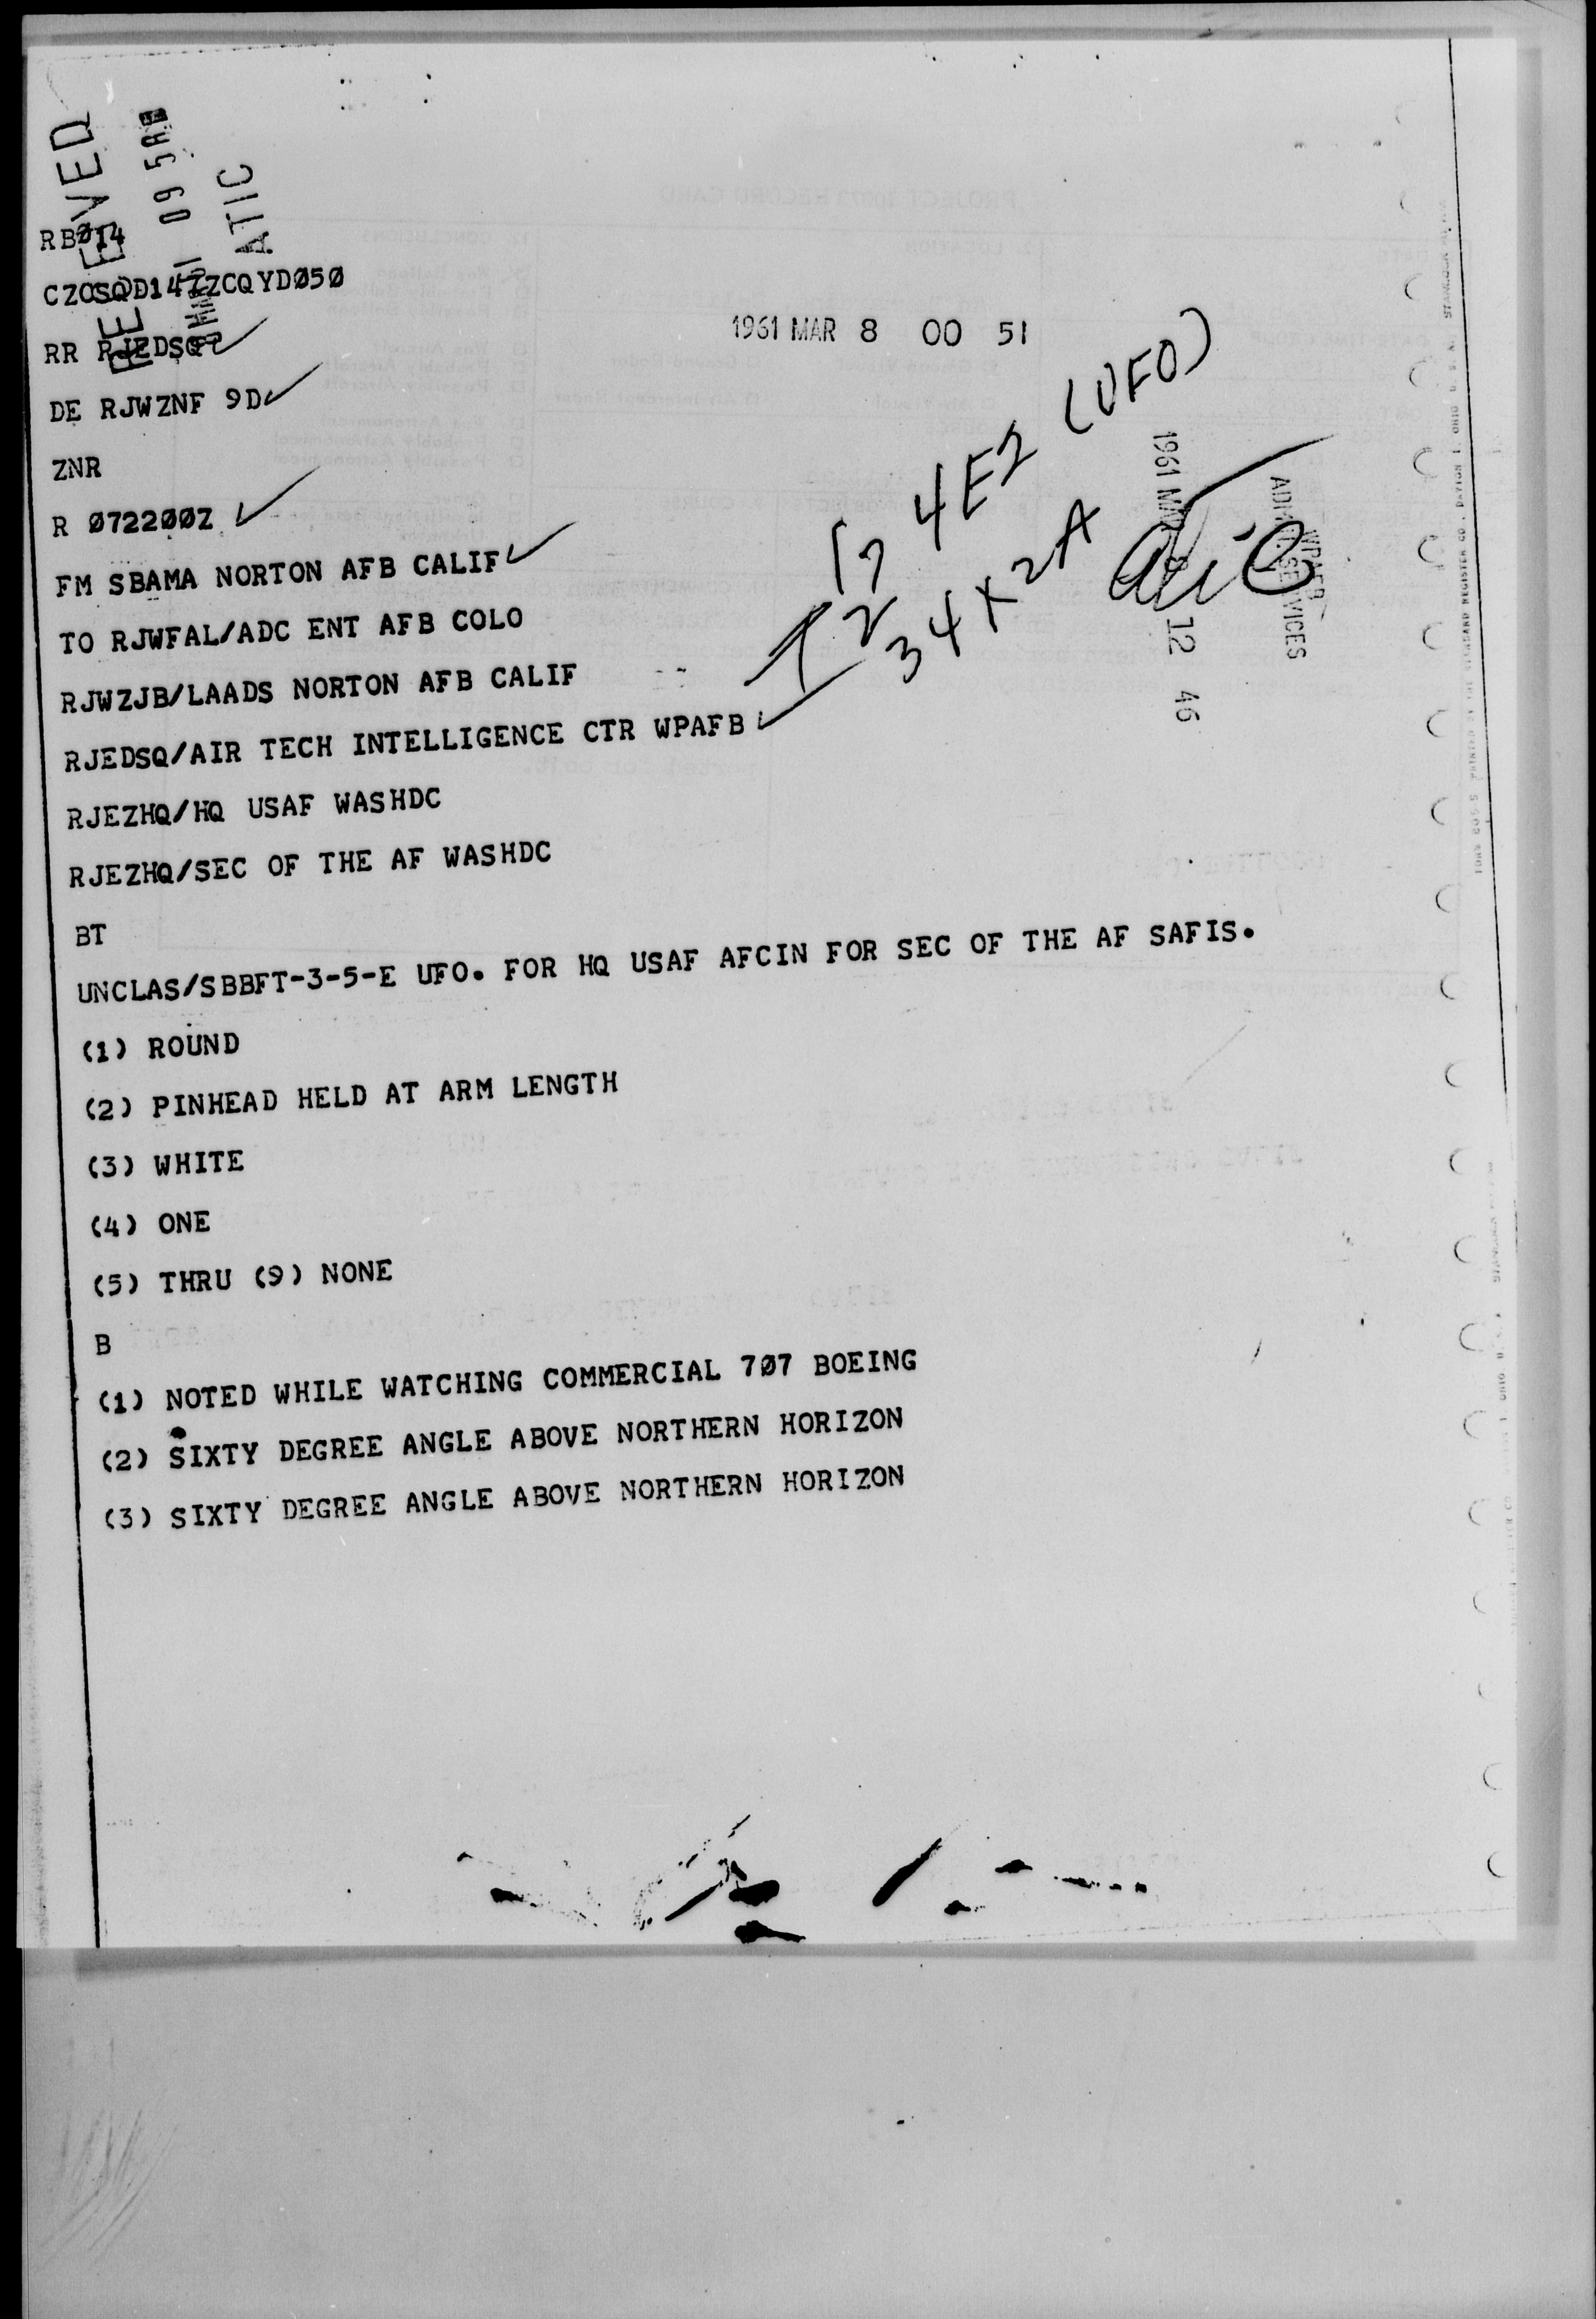 RECEIVED
ATIC
RBØ14
CZCSQD147ZCQYDØ5Ø
RR RJEDSQ
1961 MAR 8 00 51
DE RJWZNF 9D
ZNR
R Ø722ØØZ
FM SBAMA NORTON AFB CALIF
TO RJWFAL/ADC ENT AFB COLO
RJWZJB/LAADS NORTON AFB CALIF
RJEDSQ/AIR TECH INTELLIGENCE CTR WPAFB
RJEZHQ/HQ USAF WASHDC
RJEZHQ/SEC OF THE AF WASHDC
4E2 (UFO)
34X2A
atic
1961 MAR 12 46
WPAFB
ADMIN SERVICES
BT
UNCLAS/SBBFT-3-5-E UFO. FOR HQ USAF AFCIN FOR SEC OF THE AF SAFIS.
(1) ROUND
(2) PINHEAD HELD AT ARM LENGTH
(3) WHITE
(4) ONE
(5) THRU (9) NONE
B
(1) NOTED WHILE WATCHING COMMERCIAL 7Ø7 BOEING
(2) SIXTY DEGREE ANGLE ABOVE NORTHERN HORIZON
(3) SIXTY DEGREE ANGLE ABOVE NORTHERN HORIZON